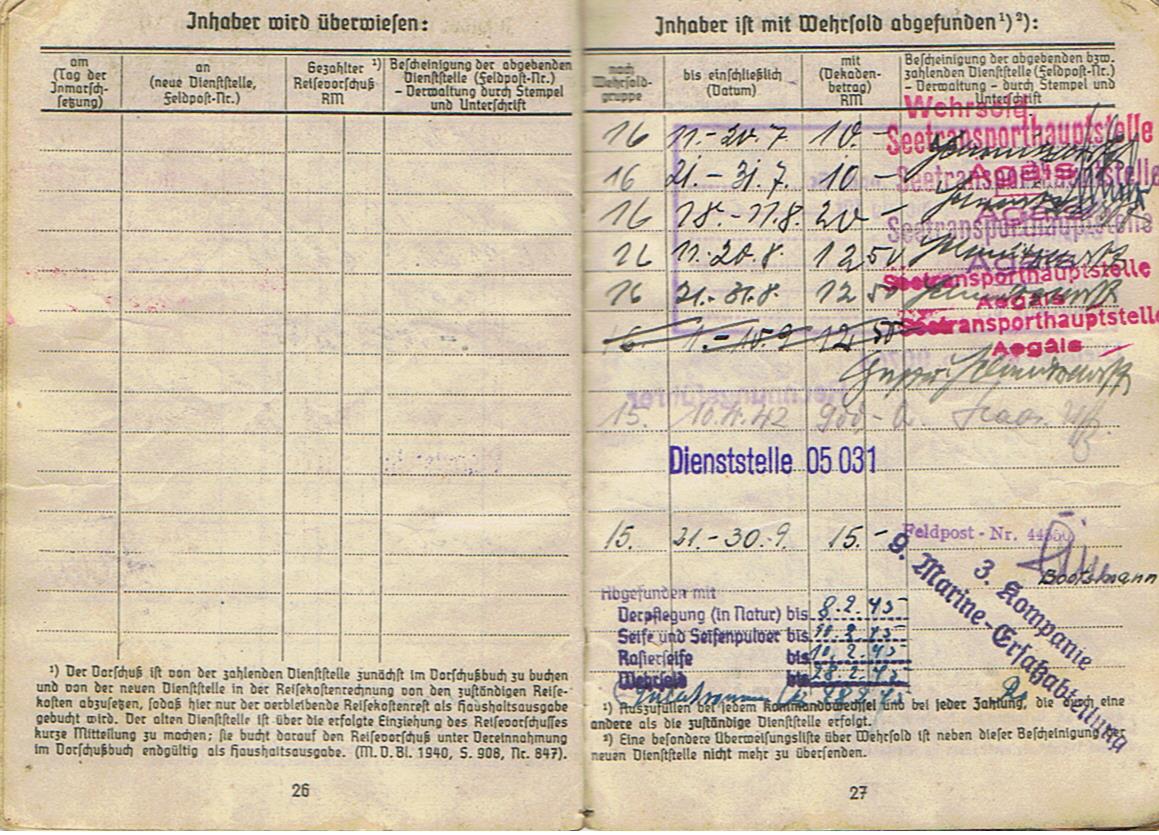 Inhaber wird überwiesen:
am
(Tag der
Inmarsch-
setzung)
an
(neue Dienststelle,
Feldpost-Nr.)
Gezahlter ¹)
Reisevorschuß
RM
Bescheinigung der abgebenden
Dienststelle (Feldpost-Nr.)
- Verwaltung - durch Stempel
und Unterschrift
¹) Der Vorschuß ist von der zahlenden Dienststelle zunächst im Vorschußbuch zu buchen
und von der neuen Dienststelle in der Reisekostenrechnung von den zuständigen Reise-
kosten abzusetzen, sodaß hier nur der verbleibende Reisekostenrest als Haushaltsausgabe
gebucht wird. Der alten Dienststelle ist über die erfolgte Einziehung des Reisevorschusses
kurze Mitteilung zu machen; sie bucht darauf den Reisevorschuß unter Vereinnahmung
im Vorschußbuch endgültig als Haushaltsausgabe. (M. D. Bl. 1940, S. 908, Nr. 847).
26
Inhaber ist mit Wehrsold abgefunden¹)²):
nach
Wehrsold-
gruppe
bis einschließlich
(Datum)
mit
(Dekaden-
betrag)
RM
Bescheinigung der abgebenden bzw.
zahlenden Dienststelle (Feldpost-Nr.)
- Verwaltung - durch Stempel und
Unterschrift
Wehrsold
16 11.-20.7. 10.- Seetransporthauptstelle
Aegäis
16 21.-31.7. 10 - Seetransporthauptstelle
16 20 - Seetransporthauptstelle
16 11.-20.8. 12 50
Seetransporthauptstelle
16 21.-31.8. 12 50
Aegäis
Seetransporthauptstelle
16 1.-10.9 12 50
Aegäis
15. 10.4.42
Dienststelle 05 031
15. 21.-30.9. 15.- Feldpost - Nr.
Bootsmann
3. Kompanie
9. Marine-Ersatzabteilung
Abgefunden mit
Verpflegung (in Natur) bis 8.2.45
Seife und Seifenpulver bis
Rasierseife bis 10.2.45
Wehrsold bis 28.2.45
¹) Auszufüllen bei jedem Kommandowechsel und bei jeder Zahlung, die durch eine
andere als die zuständige Dienststelle erfolgt.
²) Eine besondere Überweisungsliste über Wehrsold ist neben dieser Bescheinigung der
neuen Dienststelle nicht mehr zu übersenden.
27